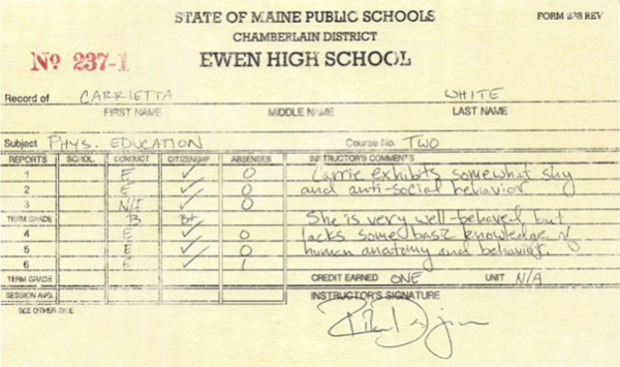 STATE OF MAINE PUBLIC SCHOOLS
FORM 238 REV
CHAMBERLAIN DISTRICT
EWEN HIGH SCHOOL
Nº 237-1
Record of CARRIETTA WHITE
FIRST NAME MIDDLE NAME LAST NAME
Subject PHYS. EDUCATION Course No. TWO
REPORTS SCHOL. CONDUCT CITIZENSHIP ABSENSES INSTRUCTOR'S COMMENTS
1 E ✓ 0 Carrie exhibits somewhat shy
2 E ✓ 0 and anti-social behavior
3 N/I ✓ 0
TERM GRADE B B+ She is very well-behaved but
4 E ✓ 0 lacks some basic knowledge of
5 E ✓ 0 human anatomy and behavior.
6 E ✓ 1
TERM GRADE CREDIT EARNED ONE UNIT N/A
SESSION AVG. INSTRUCTOR'S SIGNATURE
SEE OTHER SIDE